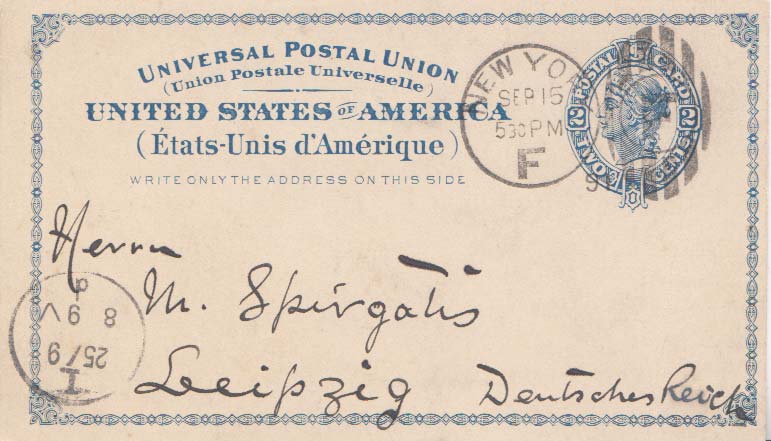 UNIVERSAL POSTAL UNION
(Union Postale Universelle)
UNITED STATES OF AMERICA
(États-Unis d'Amérique)
WRITE ONLY THE ADDRESS ON THIS SIDE
NEW YO
SEP 15
530PM
F
POSTAL CARD
2 2
TWO CENTS
Herrn
M. Spirgatis
Leipzig Deutsches Reich
I
25/9
8 9 V